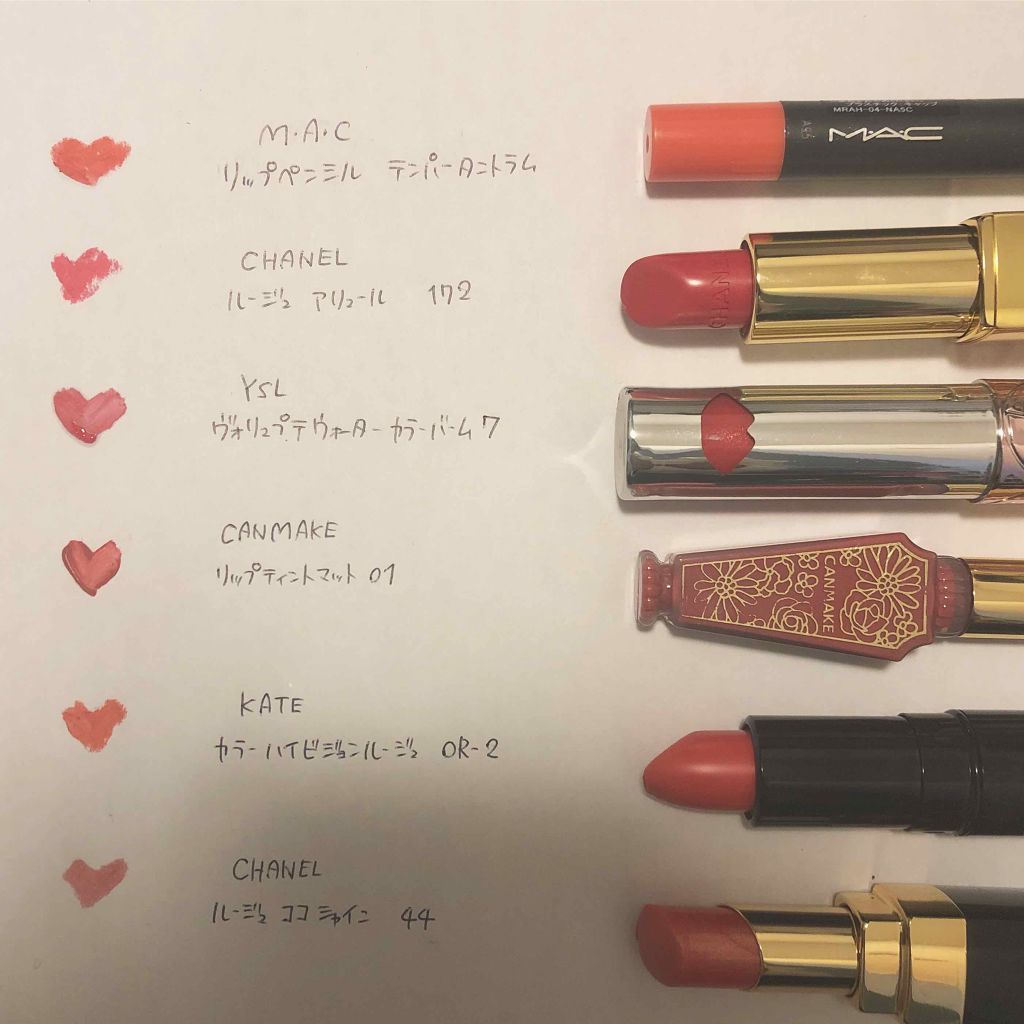 M·A·C
リップペンシル テンパータントラム
CHANEL
ルージュ アリュール 172
YSL
ヴォリュプテウォーターカラーバーム7
CANMAKE
リップティントマット 01
KATE
カラーハイビジョンルージュ OR-2
CHANEL
ルージュ ココ シャイン 44
プラスチック・キャップ
MRAH-04-NASC
A65
M·A·C
CHANEL
CANMAKE